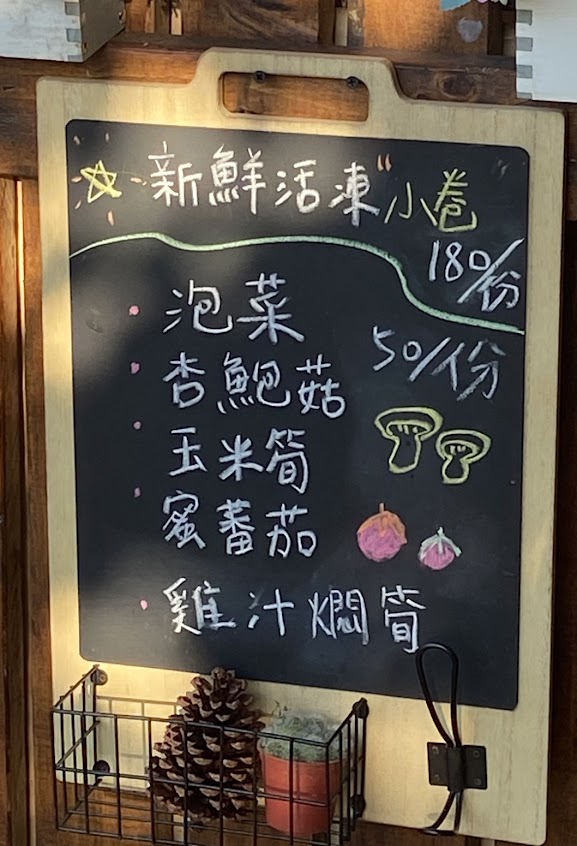 新鮮活凍"小卷
180/份
泡菜
50/份
杏鮑菇
玉米筍
蜜蕃茄
雞汁燜筍